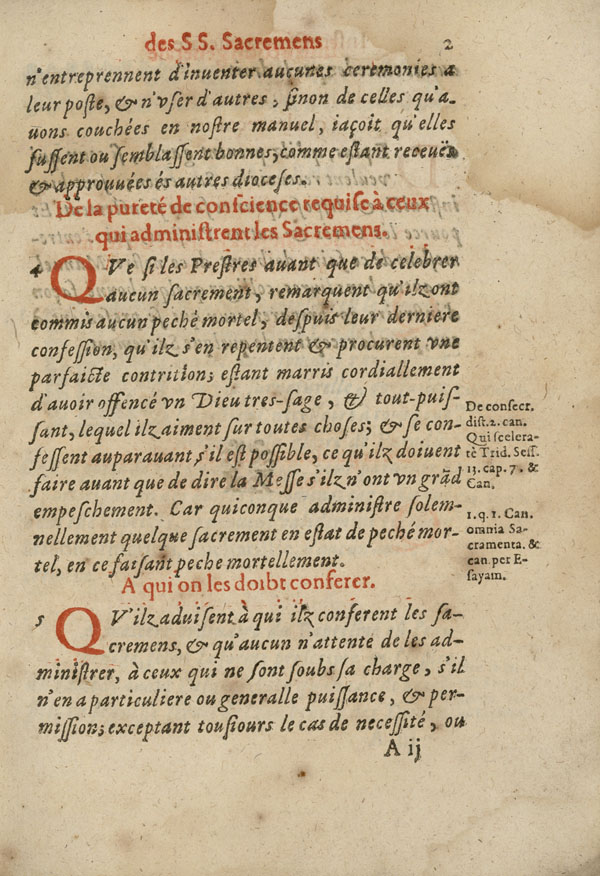 des SS. Sacremens 2
n'entreprennent d'inuenter aucunes ceremonies a
leur poste, & n'vser d'autres, sinon de celles qu'a-
uons couchées en nostre manuel, iaçoit qu'elles
fussent ou semblassent bonnes, comme estant receuës
& approuuées és autres dioceses.
De la pureté de conscience requise à ceux
qui administrent les Sacremens.
4 QVe si les Prestres auant que de celebrer
aucun sacrement, remarquent qu'ilz ont
commis aucun peché mortel, despuis leur derniere
confession, qu'ilz s'en repentent & procurent vne
parfaicte contrition; estant marris cordiallement
d'auoir offencé vn Dieu tres-sage, & tout-puis-
sant, lequel ilz aiment sur toutes choses; & se con-
fessent auparauant s'il est possible, ce qu'ilz doiuent
faire auant que de dire la Messe s'ilz n'ont vn grãd
empeschement. Car quiconque administre solem-
nellement quelque sacrement en estat de peché mor-
tel, en ce faisant peche mortellement.
De consecr.
dist. 2. can.
Qui scelera-
tè Trid. Sess.
13. cap. 7. &
Can.
1. q. 1. Can.
omnia Sa-
cramenta. &
can. per E-
sayam.
A qui on les doibt conferer.
5 QV'ilz aduisent à qui ilz conferent les sa-
cremens, & qu'aucun n'attente de les ad-
ministrer, à ceux qui ne sont soubs sa charge, s'il
n'en a particuliere ou generalle puissance, & per-
mission; exceptant tousiours le cas de necessité, ou
A ij